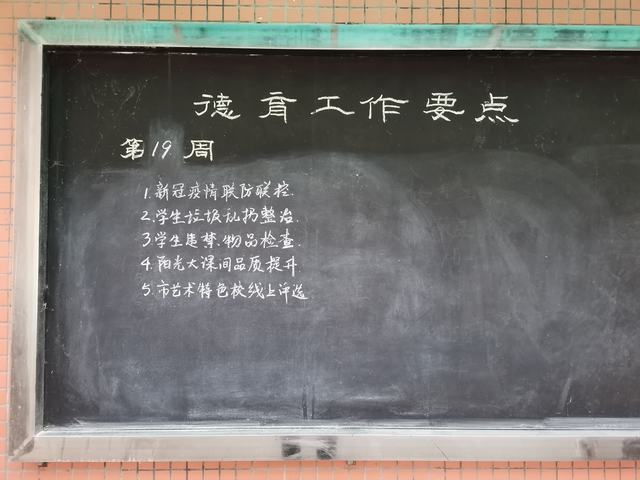 德育工作要点
第19周
1.新冠疫情联防联控.
2.学生垃圾乱扔整治.
3.学生违禁物品检查.
4.阳光大课间品质提升
5.市艺术特色校线上评选